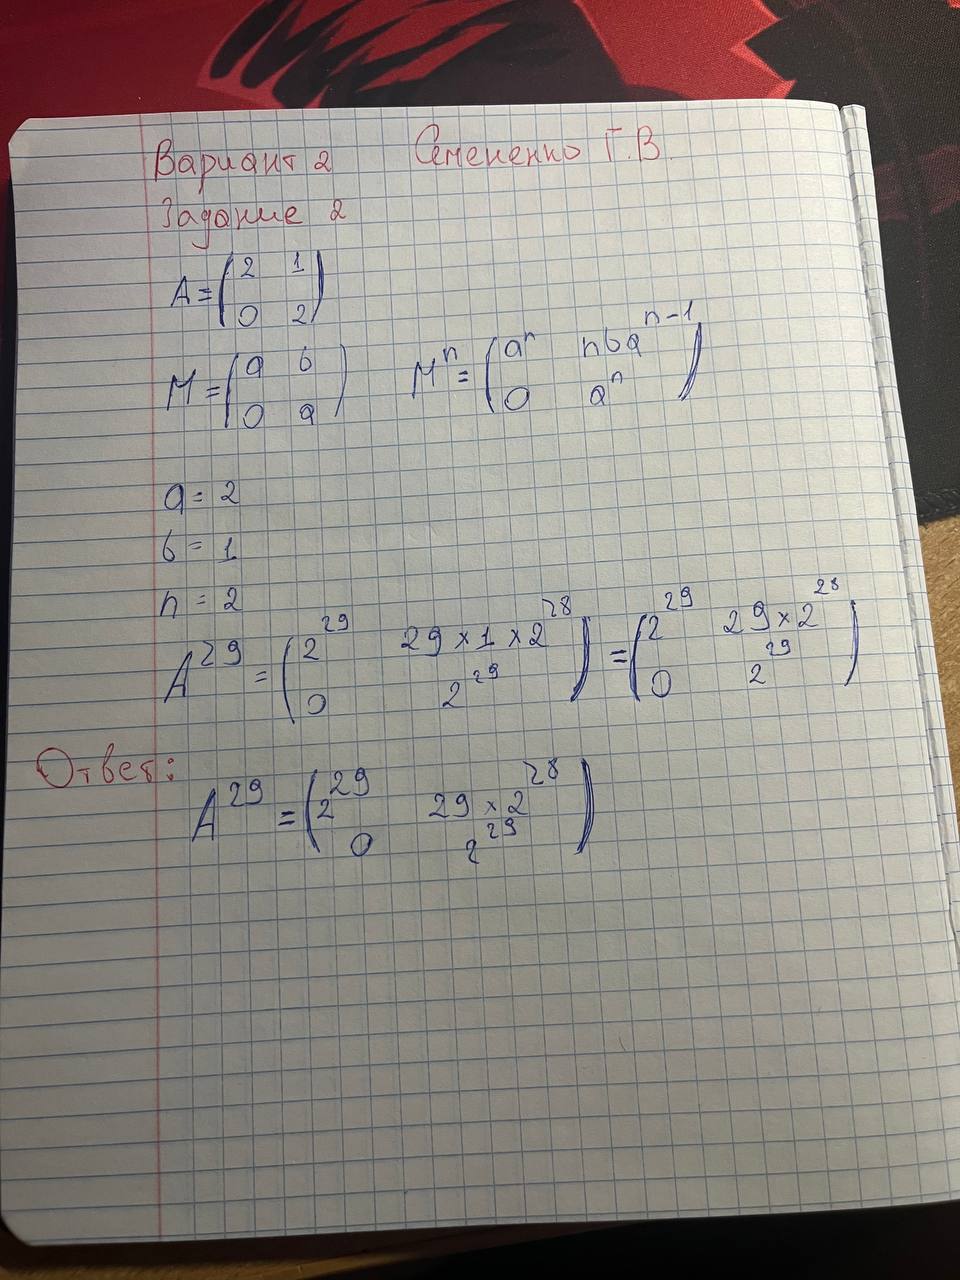 Вариант 2 Семененко Г.В.
Задание 2
A = (2 1
0 2)
M = (a b
0 a) Mⁿ = (aⁿ nbaⁿ⁻¹
0 aⁿ)
a = 2
b = 1
n = 2
A²⁹ = (2²⁹ 29×1×2²⁸
0 2²⁹) = (2²⁹ 29×2²⁸
0 2²⁹)
Ответ:
A²⁹ = (2²⁹ 29×2²⁸
0 2²⁹)